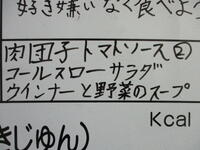 好き嫌いなく食べよう
肉団子トマトソース②
コールスローサラダ
ウインナーと野菜のスープ
Kcal
きじゅん)